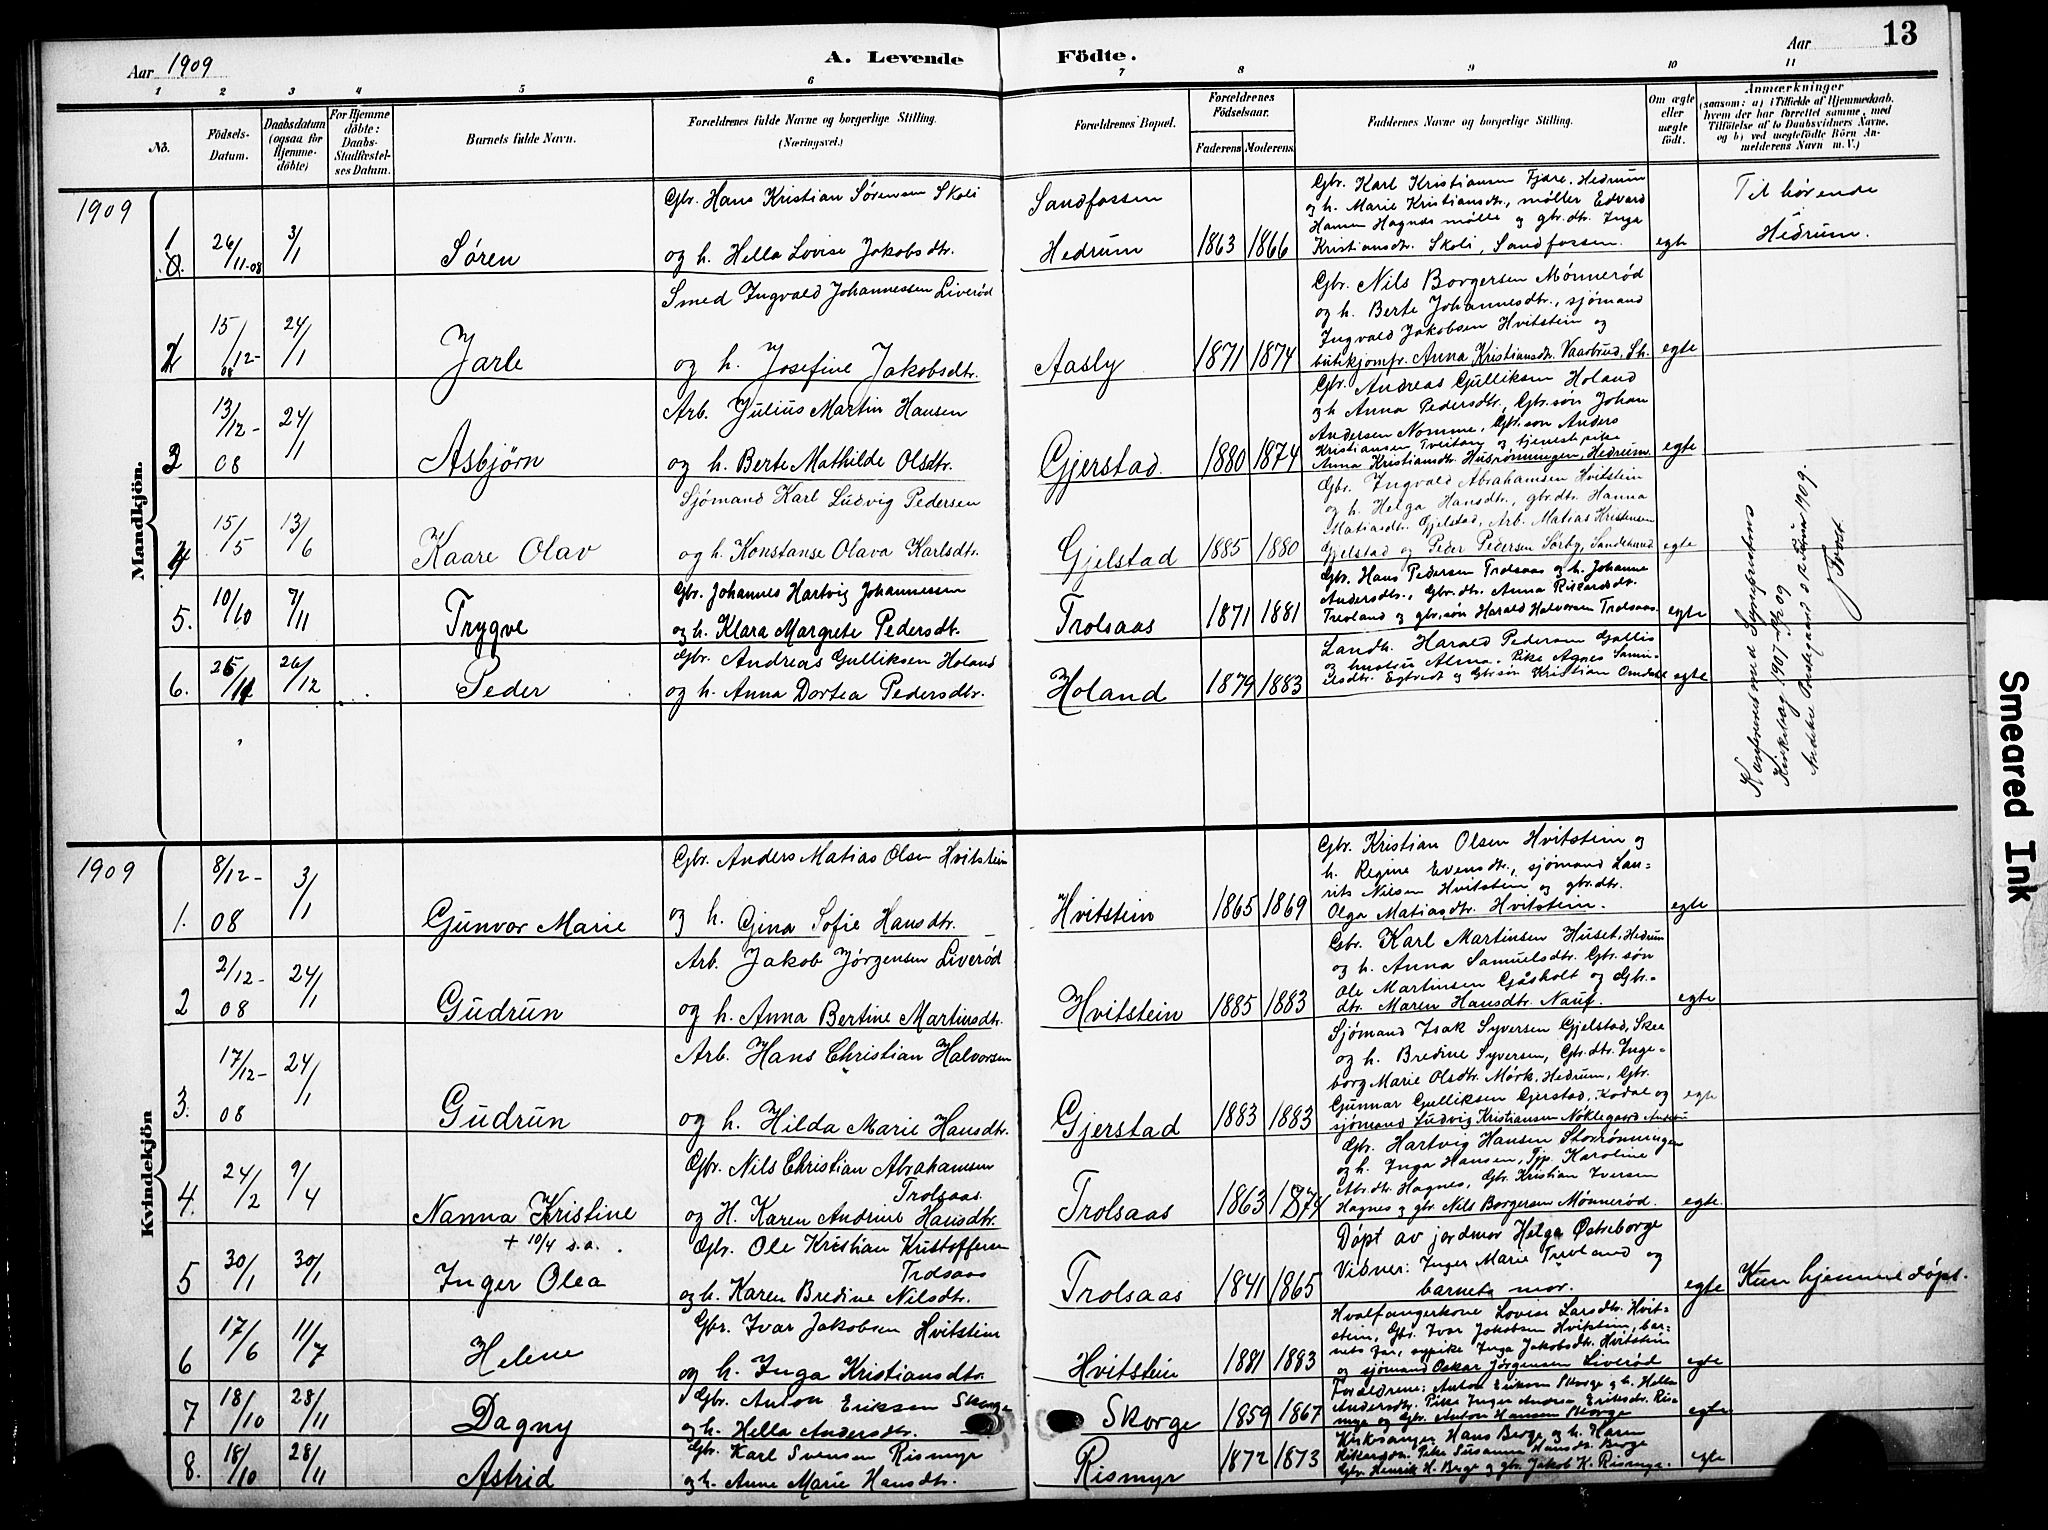 13
Aar 1909
A. Levende
Födte.
Aar
1 2 3 4 5 6 7 8 9 10 11
No.
Födsels-
Datum.
Daabsdatum
(ogsaa for
Hjemme-
döbte)
For Hjemme
döbte:
Daabs-
Stadfæstel-
ses Datum.
Barnets fulde Navn.
Forældrenes fulde Navne og borgerlige Stilling.
(Næringsvei.)
Forældrenes Bopæl.
Forældrenes
Födselsaar.
Faderens Moderens
Faddernes Navne og borgerlige Stilling.
Om ægte
eller
uægte
født.
Anmærkninger
(saasom: a) i Tilfælde af Hjemmedaab,
hvem der har forrettet samme, med
Tilföielse af to Daabsvidners Navne,
og b) ved uægtefödte Börn An-
melderens Navn m. V.)
Mandkjön.
1909
1
26/11-08
3/1
Søren
Gbr. Hans Kristian Sørensen Skoli
og h. Hella Lovise Jakobsdtr.
Sandfossen
Hedrum
1863 1866
Gbr. Karl Kristiansen Fjære, Hedrum
og h. Marie Kristiansdtr., møller Edvard
Hansen Hagnes mølle og gbr.dtr. Inga
Kristiansdtr. Skoli, Sandfossen.
egte
Til hørende
Hedrum.
2
15/12-08
24/1
Jarle
Smed Ingvald Johannessen Liverød
og h. Josefine Jakobsdtr.
Aasly
1871 1874
Gbr. Nils Borgersen Mønnerød
og h. Berte Johannesdtr., sjømand
Ingvald Jakobsen Hvitstein og
butikjomfr. Anna Kristiansdtr. Vaarbrud, Sh.
egte
3
13/12-08
24/1
Asbjørn
Arb. Julius Martin Hansen
og h. Berte Mathilde Olsdtr.
Gjerstad.
1880 1874
Gbr. Andreas Gulliksen Holand
og h Anna Pedersdtr., Gbr.søn Johan
Andersen Nomme, Gbr.søn Anders
Kristiansen Tveitan og tjenestpike
Anna Kristiansdtr. Husrønningen, Hedrum.
egte
4
15/5
13/6
Kaare Olav
Sjømand Karl Ludvig Pedersen
og h. Konstanse Olava Karlsdtr.
Gjelstad
1885 1880
Gbr. Ingvald Abrahamsen Hvitstein
og h. Helga Hansdtr., gbr.dtr. Hanna
Matiasdtr. Gjelstad, Arb. Matias Kristensen
Gjelstad og Peder Pedersen Sørby, Sandeherred
egte
5.
10/10
7/11
Trygve
Gbr. Johannes Hartvig Johannessen
og h. Klara Margrete Pedersdtr.
Trolsaas
1871 1881
Gbr. Hans Pedersen Trolsaas og h. Johanne
Andersdtr., Gbr.dtr. Anna Rikardsdtr.
Trevland og gbr.søn Harald Halvorsen Trolsaas.
egte
6.
25/11
26/12
Peder
Gbr. Andreas Gulliksen Holand
og h. Anna Dortea Pedersdtr.
Holand
1879 1883
Landh. Harald Pedersen Gallis
og hustru Alma. Pike Agnes Samu-
elsdtr. og Gbr.søn Kristian Omdal
egte
Konfereret med Sogneprestens
Kirkebog 1907-1909
Andebu Prestegaard 1909.
J Frost.
Kvindekjön
1909
1.
8/12-08
3/1
Gunvor Marie
Gbr. Anders Matias Olsen Hvitstein
og h. Gina Sofie Hansdtr.
Hvitstein
1865 1869
Gbr. Kristian Olsen Hvitstein og
h. Regine Evensdtr., sjømand Lau-
rits Nilsen Hvitstein og gbr.dtr.
Olga Matiasdtr. Hvitstein.
egte
2
2/12-08
24/1
Gudrun
Arb. Jakob Jørgensen Liverød
og h. Anna Bertine Martinsdtr.
Hvitstein
1885 1883
Gbr. Karl Martinsen Huset, Hedrum
og h. Anna Samuelsdtr. Gbr.søn
Ole Martinsen Gåsholt og Gbr-
dtr. Maren Hansdtr. Nauf.
egte
3.
17/12-08
24/1
Gudrun
Arb. Hans Christian Halvorsen
og h. Hilda Marie Hansdtr.
Gjerstad
1883 1883
Sjømand Isak Syversen Gjelstad, Skee
og h. Bredine Syversen, Gbr.dtr. Inge-
borg Marie Olsdtr. Mørk, Hedrum, Gbr.
Gunnar Gulliksen Gjerstad, Kodal og
sjømand Ludvig Kristiansen Nøklegaard Andebu
egte
4.
24/2
9/4
Nanna Kristine
Gbr. Nils Christian Abrahamsen
Trolsaas.
og H. Karen Andrine Hansdtr.
Trolsaas
1863 1874
Gbr. Hartvig Hansen Storrønningen
og h. Inga Hansen, Tjp. Karoline
Abr.dtr. Hagnes, Gbr. Kristian Iversen
Hagnes og gbr. Nils Borgersen Mønnerød.
egte.
5
30/1
30/1
+ 10/4 s.a.
Inger Olea
Gbr. Ole Kristian Kristoffersen
Trolsaas
og h. Karen Bredine Nilsdtr.
Trolsaas
1841 1865
Døpt av jordmor Helga Østreborge
Vidner: Inger Marie Trevland og
barnets mor.
egte
Kun hjemmedøpt.
6
17/6
11/7
Helene
Gbr. Ivar Jakobsen Hvitstein
og h. Inga Kristiansdtr.
Hvitstein
1881 1883
Hvalfangerkone Lovise Larsdtr. Hvit-
stein, Gbr. Ivar Jakobsen Hvitstein, bar-
nets far, sypike Inga Jakobsdtr. Hvitstein
og sjømand Oskar Jørgensen Liverød
egte
7
18/10
28/11
Dagny
Gbr. Anton Eriksen Skorge
og h. Hella Andersdtr.
Skorge
1859 1867
Forældrene: Anton Eriksen Skorge og h. Hella
Andersdtr. Pike Inger Andrea Eriksdtr. Ris-
myr og Gbr. Anton Hansen Skorge
egte
8.
18/10
28/11
Astrid
Gbr. Karl Svensen Rismyr
og h. Anne Marie Hansdtr.
Rismyr
1872 1873
Kirksanger Hans Berge og h. Karen
Rikardsdtr. Pike Susanne Hansdtr. Berge
Gbr. Henrik H. Berge og gbr. Jakob K. Rismyr.
egte
Smeared Ink